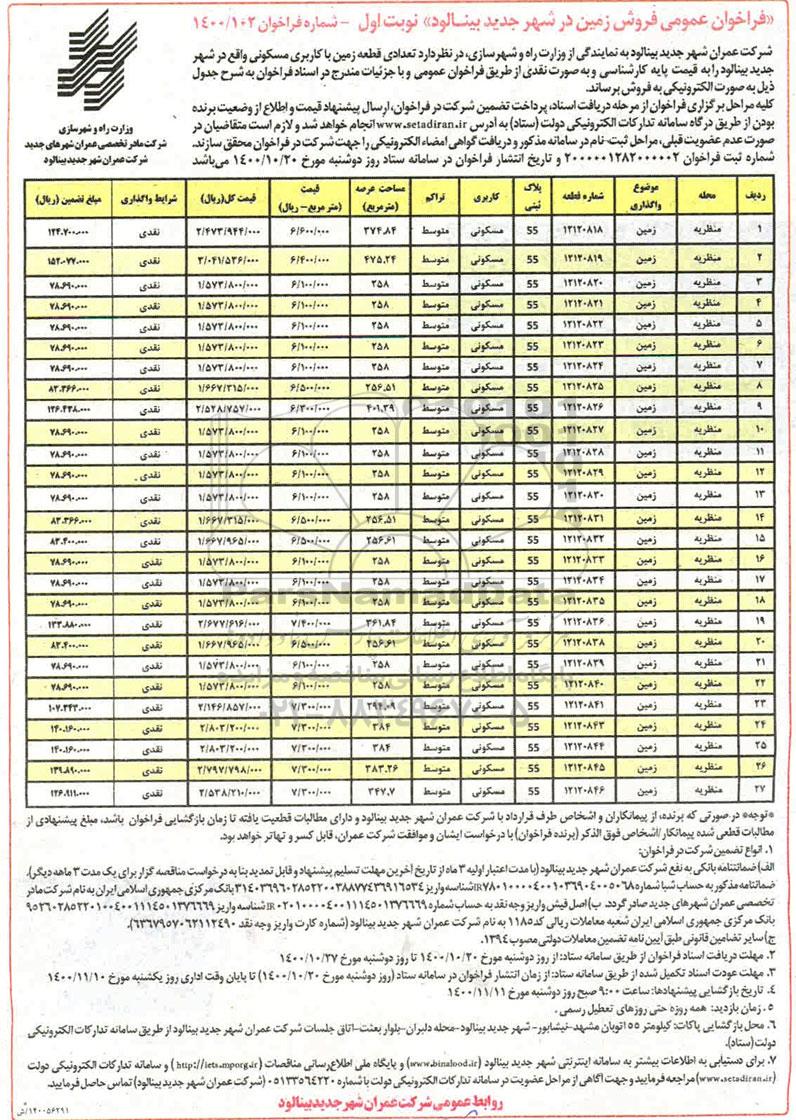 «فراخوان عمومی فروش زمین در شهر جدید بینـالود» نوبت اول - شماره فراخوان ۱۴۰۰/۱۰۲
شرکت عمران شهر جدید بینالود به نمایندگی از وزارت راه و شهرسازی، در نظر دارد تعدادی قطعه زمین با کاربری مسکونی واقع در شهر
جدید بینالود را به قیمت پایه کارشناسی و به صورت نقدی از طریق فراخوان عمومی و با جزئیات مندرج در اسناد فراخوان به شرح جدول
ذیل به صورت الکترونیکی به فروش برساند.
کلیه مراحل برگزاری فراخوان از مرحله دریافت اسناد، پرداخت تضمین شرکت در فراخوان، ارسال پیشنهاد قیمت و اطلاع از وضعیت برنده
بودن از طریق درگاه سامانه تدارکات الکترونیکی دولت (ستاد) به آدرس www.setadiran.ir انجام خواهد شد و لازم است متقاضیان در
صورت عدم عضویت قبلی، مراحل ثبت-نام در سامانه مذکور و دریافت گواهی امضاء الکترونیکی را جهت شرکت در فراخوان محقق سازند.
شماره ثبت فراخوان ۲۰۰۰۰۰۱۲۸۲۰۰۰۰۰۲ و تاریخ انتشار فراخوان در سامانه ستاد روز دوشنبه مورخ ۱۴۰۰/۱۰/۲۰ می‌باشد
وزارت راه و شهرسازی
شرکت مادر تخصصی عمران شهرهای جدید
شرکت عمران شهر جدید بینالود
ردیف محله موضوع واگذاری شماره قطعه پلاک ثبتی کاربری تراکم مساحت عرصه (مترمربع) قیمت (مترمربع - ریال) قیمت کل(ریال) شرایط واگذاری مبلغ تضمین (ریال)
۱ منظریه زمین ۱۲۱۲۰۸۱۸ 55 مسکونی متوسط ۳۷۴.۸۴ ۶/۶۰۰/۰۰۰ ۲/۴۷۳/۹۴۴/۰۰۰ نقدی ۱۲۴.۷۰۰.۰۰۰
۲ منظریه زمین ۱۲۱۲۰۸۱۹ 55 مسکونی متوسط ۴۷۵.۲۴ ۶/۴۰۰/۰۰۰ ۳/۰۴۱/۵۳۶/۰۰۰ نقدی ۱۵۲.۰۷۷.۰۰۰
۳ منظریه زمین ۱۲۱۲۰۸۲۰ 55 مسکونی متوسط ۲۵۸ ۶/۱۰۰/۰۰۰ ۱/۵۷۳/۸۰۰/۰۰۰ نقدی ۷۸.۶۹۰.۰۰۰
۴ منظریه زمین ۱۲۱۲۰۸۲۱ 55 مسکونی متوسط ۲۵۸ ۶/۱۰۰/۰۰۰ ۱/۵۷۳/۸۰۰/۰۰۰ نقدی ۷۸.۶۹۰.۰۰۰
۵ منظریه زمین ۱۲۱۲۰۸۲۲ 55 مسکونی متوسط ۲۵۸ ۶/۱۰۰/۰۰۰ ۱/۵۷۳/۸۰۰/۰۰۰ نقدی ۷۸.۶۹۰.۰۰۰
۶ منظریه زمین ۱۲۱۲۰۸۲۳ 55 مسکونی متوسط ۲۵۸ ۶/۱۰۰/۰۰۰ ۱/۵۷۳/۸۰۰/۰۰۰ نقدی ۷۸.۶۹۰.۰۰۰
۷ منظریه زمین ۱۲۱۲۰۸۲۴ 55 مسکونی متوسط ۲۵۸ ۶/۱۰۰/۰۰۰ ۱/۵۷۳/۸۰۰/۰۰۰ نقدی ۷۸.۶۹۰.۰۰۰
۸ منظریه زمین ۱۲۱۲۰۸۲۵ 55 مسکونی متوسط ۲۵۶.۵۱ ۶/۵۰۰/۰۰۰ ۱/۶۶۷/۳۱۵/۰۰۰ نقدی ۸۳.۳۶۶.۰۰۰
۹ منظریه زمین ۱۲۱۲۰۸۲۶ 55 مسکونی متوسط ۴۰۱.۳۹ ۶/۳۰۰/۰۰۰ ۲/۵۲۸/۷۵۷/۰۰۰ نقدی ۱۲۶.۴۳۸.۰۰۰
۱۰ منظریه زمین ۱۲۱۲۰۸۲۷ 55 مسکونی متوسط ۲۵۸ ۶/۱۰۰/۰۰۰ ۱/۵۷۳/۸۰۰/۰۰۰ نقدی ۷۸.۶۹۰.۰۰۰
۱۱ منظریه زمین ۱۲۱۲۰۸۲۸ 55 مسکونی متوسط ۲۵۸ ۶/۱۰۰/۰۰۰ ۱/۵۷۳/۸۰۰/۰۰۰ نقدی ۷۸.۶۹۰.۰۰۰
۱۲ منظریه زمین ۱۲۱۲۰۸۲۹ 55 مسکونی متوسط ۲۵۸ ۶/۱۰۰/۰۰۰ ۱/۵۷۳/۸۰۰/۰۰۰ نقدی ۷۸.۶۹۰.۰۰۰
۱۳ منظریه زمین ۱۲۱۲۰۸۳۰ 55 مسکونی متوسط ۲۵۸ ۶/۱۰۰/۰۰۰ ۱/۵۷۳/۸۰۰/۰۰۰ نقدی ۷۸.۶۹۰.۰۰۰
۱۴ منظریه زمین ۱۲۱۲۰۸۳۱ 55 مسکونی متوسط ۲۵۶.۵۱ ۶/۵۰۰/۰۰۰ ۱/۶۶۷/۳۱۵/۰۰۰ نقدی ۸۳.۳۶۶.۰۰۰
۱۵ منظریه زمین ۱۲۱۲۰۸۳۲ 55 مسکونی متوسط ۲۵۶.۶۱ ۶/۵۰۰/۰۰۰ ۱/۶۶۷/۹۶۵/۰۰۰ نقدی ۸۳.۴۰۰.۰۰۰
۱۶ منظریه زمین ۱۲۱۲۰۸۳۳ 55 مسکونی متوسط ۲۵۸ ۶/۱۰۰/۰۰۰ ۱/۵۷۳/۸۰۰/۰۰۰ نقدی ۷۸.۶۹۰.۰۰۰
۱۷ منظریه زمین ۱۲۱۲۰۸۳۴ 55 مسکونی متوسط ۲۵۸ ۶/۱۰۰/۰۰۰ ۱/۵۷۳/۸۰۰/۰۰۰ نقدی ۷۸.۶۹۰.۰۰۰
۱۸ منظریه زمین ۱۲۱۲۰۸۳۵ 55 مسکونی متوسط ۲۵۸ ۶/۱۰۰/۰۰۰ ۱/۵۷۳/۸۰۰/۰۰۰ نقدی ۷۸.۶۹۰.۰۰۰
۱۹ منظریه زمین ۱۲۱۲۰۸۳۶ 55 مسکونی متوسط ۳۶۱.۸۴ ۷/۴۰۰/۰۰۰ ۲/۶۷۷/۶۱۶/۰۰۰ نقدی ۱۳۳.۸۸۰.۰۰۰
۲۰ منظریه زمین ۱۲۱۲۰۸۳۸ 55 مسکونی متوسط ۲۵۶.۶۱ ۶/۵۰۰/۰۰۰ ۱/۶۶۷/۹۶۵/۰۰۰ نقدی ۸۳.۴۰۰.۰۰۰
۲۱ منظریه زمین ۱۲۱۲۰۸۳۹ 55 مسکونی متوسط ۲۵۸ ۶/۱۰۰/۰۰۰ ۱/۵۷۳/۸۰۰/۰۰۰ نقدی ۷۸.۶۹۰.۰۰۰
۲۲ منظریه زمین ۱۲۱۲۰۸۴۰ 55 مسکونی متوسط ۲۵۸ ۶/۱۰۰/۰۰۰ ۱/۵۷۳/۸۰۰/۰۰۰ نقدی ۷۸.۶۹۰.۰۰۰
۲۳ منظریه زمین ۱۲۱۲۰۸۴۱ 55 مسکونی متوسط ۲۹۴.۰۹ ۷/۳۰۰/۰۰۰ ۲/۱۴۶/۸۵۷/۰۰۰ نقدی ۱۰۷.۳۴۳.۰۰۰
۲۴ منظریه زمین ۱۲۱۲۰۸۴۳ 55 مسکونی متوسط ۳۸۴ ۷/۳۰۰/۰۰۰ ۲/۸۰۳/۲۰۰/۰۰۰ نقدی ۱۴۰.۱۶۰.۰۰۰
۲۵ منظریه زمین ۱۲۱۲۰۸۴۴ 55 مسکونی متوسط ۳۸۴ ۷/۳۰۰/۰۰۰ ۲/۸۰۳/۲۰۰/۰۰۰ نقدی ۱۴۰.۱۶۰.۰۰۰
۲۶ منظریه زمین ۱۲۱۲۰۸۴۵ 55 مسکونی متوسط ۳۸۳.۲۶ ۷/۳۰۰/۰۰۰ ۲/۷۹۷/۷۹۸/۰۰۰ نقدی ۱۳۹.۸۹۰.۰۰۰
۲۷ منظریه زمین ۱۲۱۲۰۸۴۶ 55 مسکونی متوسط ۳۴۷.۷ ۷/۳۰۰/۰۰۰ ۲/۵۳۸/۲۱۰/۰۰۰ نقدی ۱۲۶.۹۱۱.۰۰۰
ParsNamadData
۰۲۱-۸۸۳۴۹۶۷۰-۵
*توجه* در صورتی که برنده، از پیمانکاران و اشخاص طرف قرارداد با شرکت عمران شهر جدید بینالود و دارای مطالبات قطعیت یافته تا زمان بازگشایی فراخوان باشد، مبلغ پیشنهادی از
مطالبات قطعی شده پیمانکار/اشخاص فوق الذکر (برنده فراخوان) با درخواست ایشان و موافقت شرکت عمران، قابل کسر و تهاتر خواهد بود.
۱. انواع تضمین شرکت در فراخوان:
الف) ضمانتنامه بانکی به نفع شرکت عمران شهر جدید بینالود (با مدت اعتبار اولیه ۳ ماه از تاریخ آخرین مهلت تسلیم پیشنهاد و قابل تمدید بنا به درخواست مناقصه گزار برای یک مدت ۳ ماهه دیگر).
ضمانتنامه مذکور به حساب شبا شماره IR۷۸۰۱۰۰۰۰۴۰۰۱۰۳۶۹۰۴۰۰۵۰۶۸ شناسه واریز ۳۱۴۰۳۶۹۶۰۲۸۵۲۲۰۰۳۸۸۷۷۴۳۶۹۱۶۵۳۴ بانک مرکزی جمهوری اسلامی ایران به نام شرکت مادر
تخصصی عمران شهرهای جدید صادر گردد. ب) اصل فیش واریز وجه نقد به حساب شماره IR۰۲۰۱۰۰۰۰۴۰۰۱۱۱۴۵۰۱۳۷۶۶۶۹ شناسه واریز ۹۵۳۶۰۲۸۵۲۲۰۱۰۰۴۰۰۱۱۱۴۵۰۱۳۷۶۶۶۹
بانک مرکزی جمهوری اسلامی ایران شعبه معاملات ریالی کد ۱۱۸۵ به نام شرکت عمران شهر جدید بینالود (شماره کارت واریز وجه نقد ۶۳۶۷۹۵۷۰۶۲۱۱۲۴۹۰).
ج) سایر تضامین قانونی طبق آیین نامه تضمین معاملات دولتی مصوب ۱۳۹۴.
۲. مهلت دریافت اسناد فراخوان از طریق سامانه ستاد: از روز دوشنبه مورخ ۱۴۰۰/۱۰/۲۰ تا روز دوشنبه مورخ ۱۴۰۰/۱۰/۲۷
۳. مهلت عودت اسناد تکمیل شده از طریق سامانه ستاد: از زمان انتشار فراخوان در سامانه ستاد (روز دوشنبه مورخ ۱۴۰۰/۱۰/۲۰) تا پایان وقت اداری روز یکشنبه مورخ ۱۴۰۰/۱۱/۱۰
۴. تاریخ بازگشایی پیشنهادها: ساعت ۹:۰۰ صبح روز دوشنبه مورخ ۱۴۰۰/۱۱/۱۱
۵. زمان بازدید: همه روزه حتی روزهای تعطیل رسمی.
۶. محل بازگشایی پاکات: کیلومتر ۵۵ اتوبان مشهد-نیشابور- شهر جدید بینالود-محله دلبران-بلوار بعثت-اتاق جلسات شرکت عمران شهر جدید بینالود از طریق سامانه تدارکات الکترونیکی
دولت (ستاد).
۷. برای دستیابی به اطلاعات بیشتر به سامانه اینترنتی شهر جدید بینالود (www.binalood.ir) و پایگاه ملی اطلاع‌رسانی مناقصات (http://iets.mporg.ir) و سامانه تدارکات الکترونیکی دولت
(www.setadiran.ir) مراجعه فرمایید و جهت آگاهی از مراحل عضویت در سامانه تدارکات الکترونیکی دولت با شماره ۰۵۱۳۳۵۶۴۲۲۰ (شرکت عمران شهر جدید بینالود) تماس حاصل فرمایید.
روابط عمومی شرکت عمران شهر جدید بینالود
۱۴۰۰۵۶۲۹۱/ش